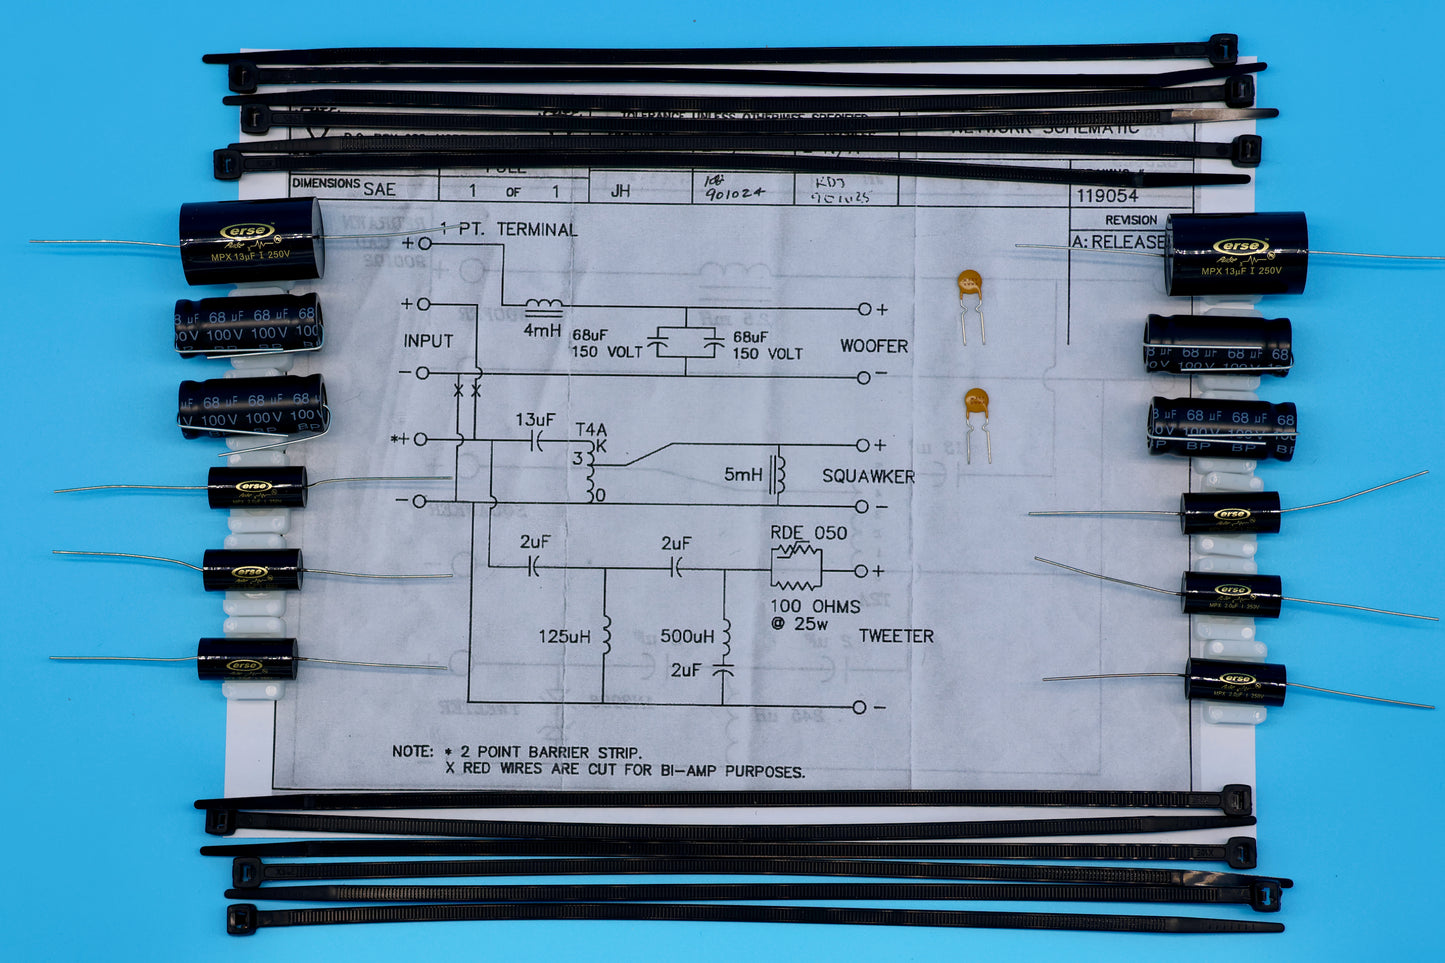 TOLERANCE UNLESS OTHERWISE SPECIFIED
NETWORK SCHEMATIC
DIMENSIONS SAE
1 OF 1
JH
901024
KDJ
901025
119054
REVISION
A: RELEASE
1 PT. TERMINAL
+
+
INPUT
−
*+
−
4mH
68uF
150 VOLT
68uF
150 VOLT
+
WOOFER
−
13uF
T4A
K
3
O
5mH
+
SQUAWKER
−
2uF
2uF
RDE 050
+
100 OHMS
@ 25w
TWEETER
125uH
500uH
2uF
−
X X
NOTE: * 2 POINT BARRIER STRIP.
X RED WIRES ARE CUT FOR BI-AMP PURPOSES.
erse
Audio
MPX 13µF I 250V
68 µF 68 µF 68
100V 100V 100V
BP BP
µF 68 µF 68 µF 68
100V 100V 100V
BP BP
erse
MPX 2.0µF I 250V
erse
erse
erse
Audio
MPX 13µF I 250V
68 µF 68 µF 68
68 µF 68 µF 68
100V 100V 100V
BP BP
erse
erse
MPX 2.0µF I 250V
erse
MPX 2.0µF I 250V